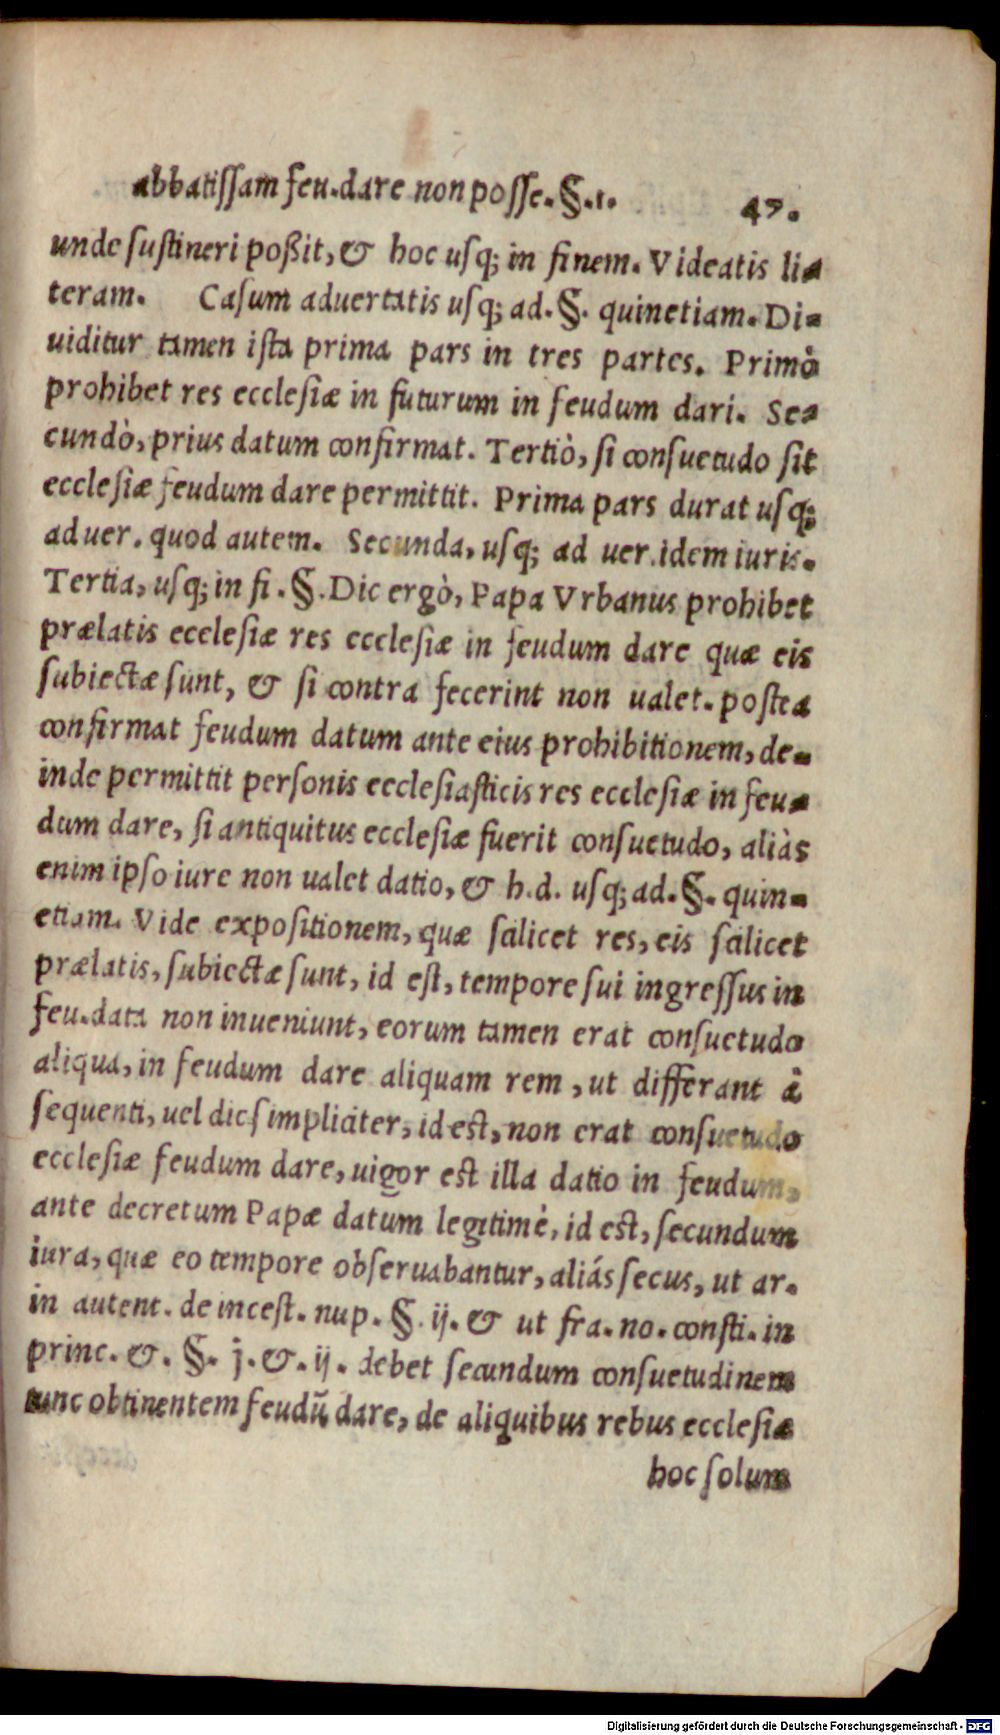 abbatissam feu.dare non posse.§.1. 47.
unde sustineri poßit, & hoc usq; in finem. Videatis li-
teram. Casum aduertatis usq; ad.§. quinetiam. Di-
uiditur tamen ista prima pars in tres partes. Primò
prohibet res ecclesiæ in futurum in feudum dari. Se-
cundò, prius datum confirmat. Tertiò, si consuetudo sit
ecclesiæ feudum dare permittit. Prima pars durat usq;
ad uer. quod autem. Secunda, usq; ad uer.idem iuris.
Tertia, usq; in fi.§.Dic ergò, Papa Vrbanus prohibet
prælatis ecclesiæ res ecclesiæ in feudum dare quæ eis
subiectæ sunt, & si contra fecerint non ualet. postea
confirmat feudum datum ante eius prohibitionem, de-
inde permittit personis ecclesiasticis res ecclesiæ in feu-
dum dare, si antiquitus ecclesiæ fuerit consuetudo, aliàs
enim ipso iure non ualet datio, & h.d. usq; ad.§. quin-
etiam. Vide expositionem, quæ scilicet res, eis scilicet
prælatis, subiectæ sunt, id est, tempore sui ingressus in
feu.data non inueniunt, eorum tamen erat consuetudo
aliqua, in feudum dare aliquam rem, ut differant à
sequenti, uel dic simpliciter, id est, non erat consuetudo
ecclesiæ feudum dare, uigor est illa datio in feudum,
ante decretum Papæ datum legitimè, id est, secundum
iura, quæ eo tempore obseruabantur, aliás secus, ut ar.
in autent. de incest. nup. §. ij. & ut fra. no. consti. in
princ. &. §. j. &. ij. debet secundum consuetudinem
tunc obtinentem feudū dare, de aliquibus rebus ecclesiæ
hoc solum
Digitalisierung gefördert durch die Deutsche Forschungsgemeinschaft - DFG